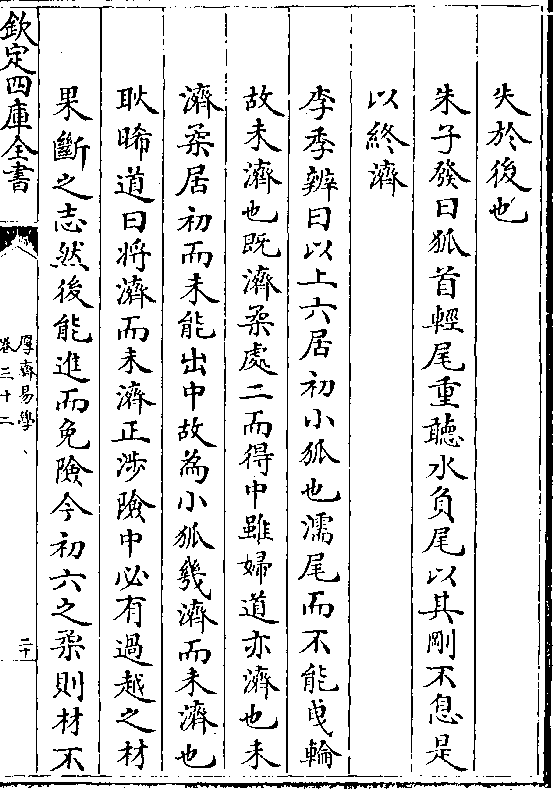 失於後也
朱子發曰狐首輕尾重聽水負尾以其剛不息是
以終濟
李季辨曰以上六居初小狐也濡尾而不能曵輪
故未濟也既濟柔處二而得中雖婦道亦濟也未
濟柔居初而未能出中故為小狐幾濟而未濟也
耿晞道曰將濟而未濟正涉險中必有過越之材
果斷之志然後能進而免險今初六之柔則材不
欽定四庫全書
厚齋易學
卷三十二
二十